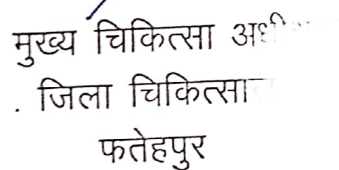 मुख्य चिकित्सा
. जिला चिकित्सा
फतेहपुर